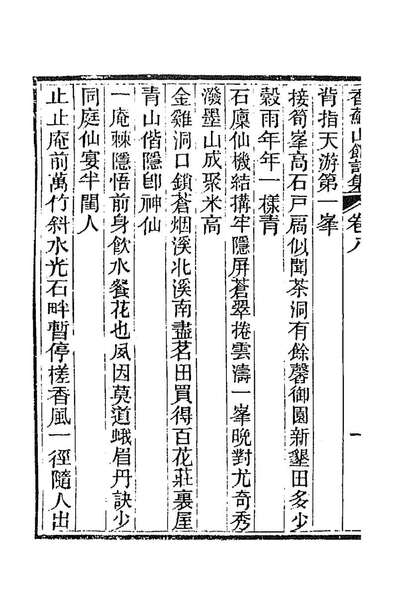 香蘇山館詩集 卷八 一
背指天游第一峯
接筍峯高石戶扃似聞茶洞有餘馨御園新墾田多少
穀雨年年一樣青
石廩仙機結搆牢隱屏蒼翠捲雲濤一峯晚對尤奇秀
潑墨山成聚米高
金雞洞口鎖蒼烟溪北溪南盡茗田買得百花莊裏屋
青山偕隱卽神仙
一庵棘隱悟前身飲水餐花也夙因莫道蛾眉丹訣少
同庭仙宴半閨人
止止庵前萬竹斜水光石畔暫停槎香風一徑隨人出